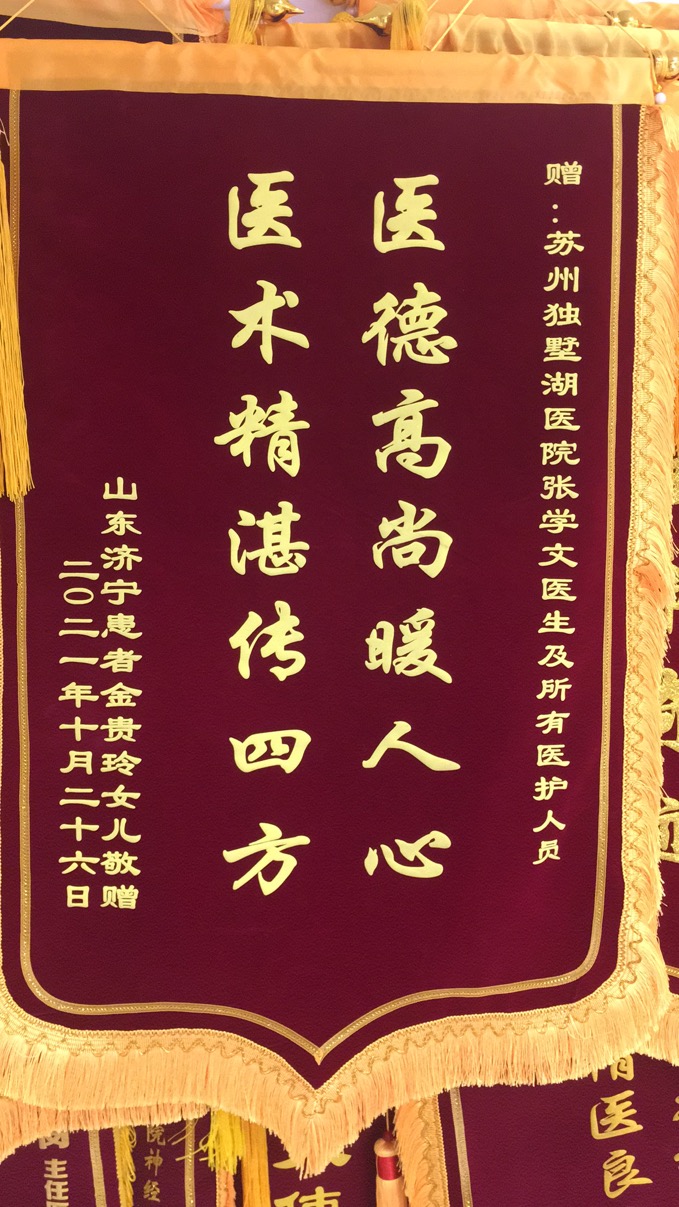 赠：苏州独墅湖医院张学文医生及所有医护人员
医德高尚暖人心
医术精湛传四方
山东济宁患者金贵玲女儿敬赠
二〇二一年十月二十六日
精医良
院神经
主任